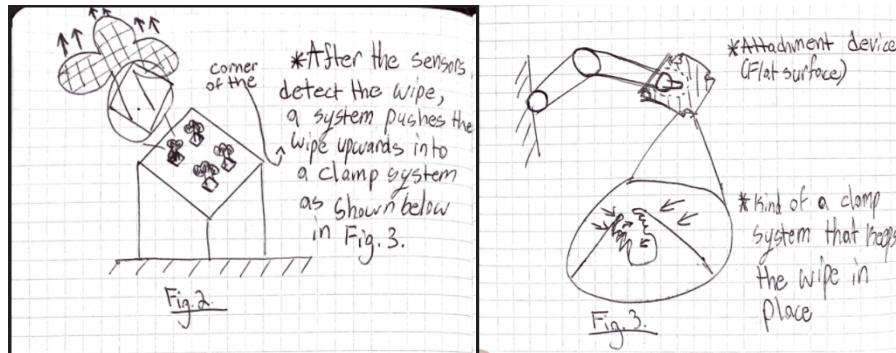 corner
of the
*After the sensors
detect the wipe,
a system pushes the
wipe upwards into
a clamp system
as shown below
in Fig. 3.
Fig. 2.
*Attachment device
(Flat surface)
*Kind of a clamp
system that keeps
the wipe in
place
Fig. 3.